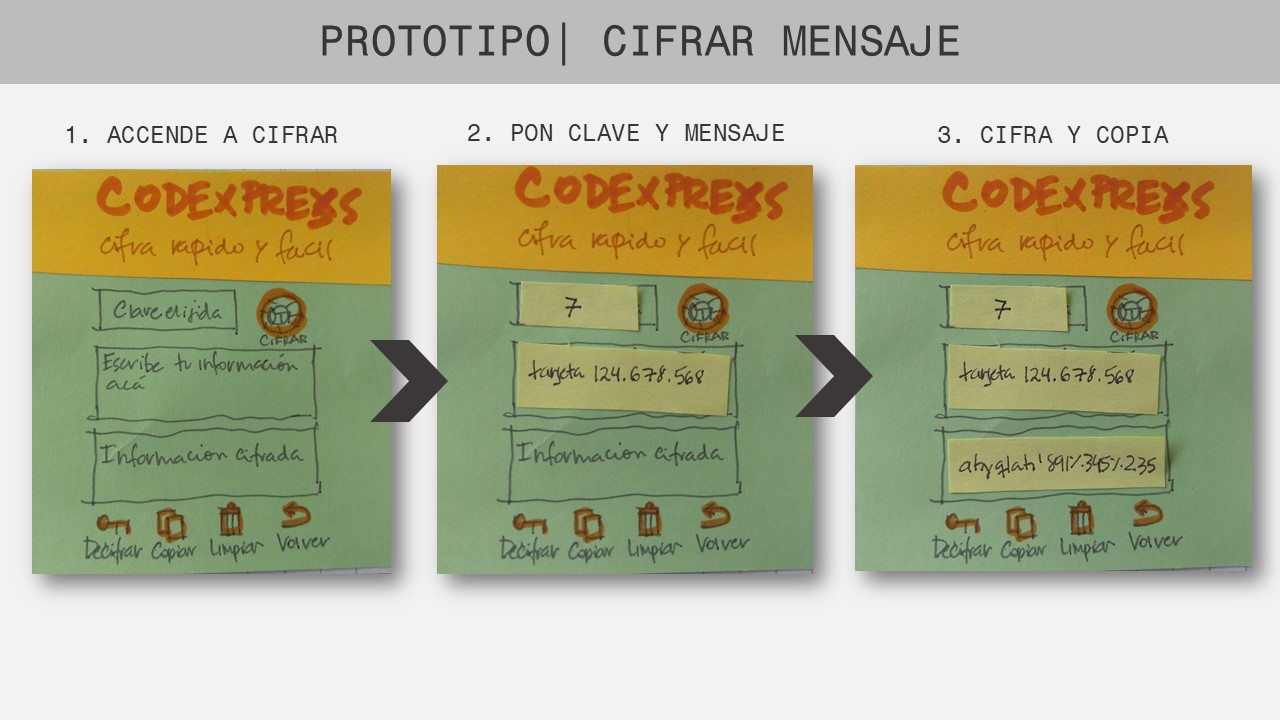 PROTOTIPO| CIFRAR MENSAJE
1. ACCENDE A CIFRAR
CODEXPRESS
cifra rapido y facil
Clave elijida
CIFRAR
Escribe tu información
acá
Informacion cifrada
Decifrar Copiar Limpiar Volver
2. PON CLAVE Y MENSAJE
CODEXPRESS
cifra rapido y facil
7
CIFRAR
tarjeta 124.678.568
Informacion cifrada
Decifrar Copiar Limpiar Volver
3. CIFRA Y COPIA
CODEXPRESS
cifra rapido y facil
7
CIFRAR
tarjeta 124.678.568
Decifrar Copiar Limpiar Volver